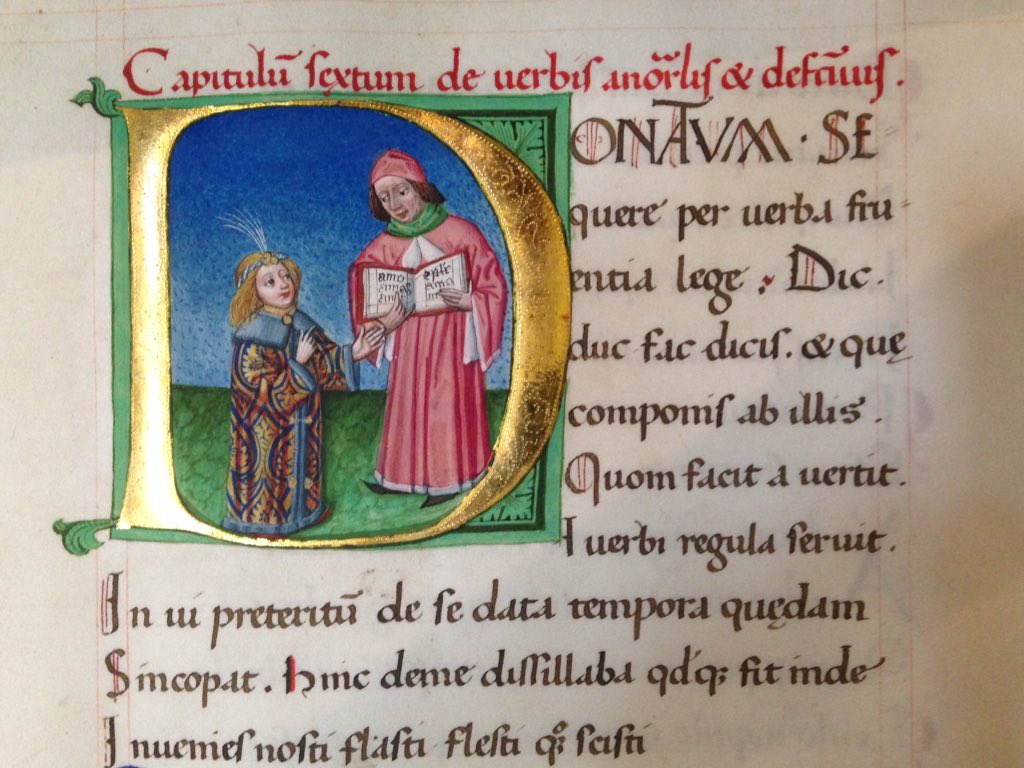 Capitulū sextum de uerbis anõrlis & defectiuis.
DONATVM · SE
quere per uerba fru-
entia lege ; Dic.
duc fac dicis. & quę
componis ab illis.
Quom facit a uertit.
I uerbi regula seruit.
In ui preteritū de se data tempora quędam
Sincopat. hinc deme dissillaba qd'q; fit inde
Inuenies nosti flasti flesti scisti